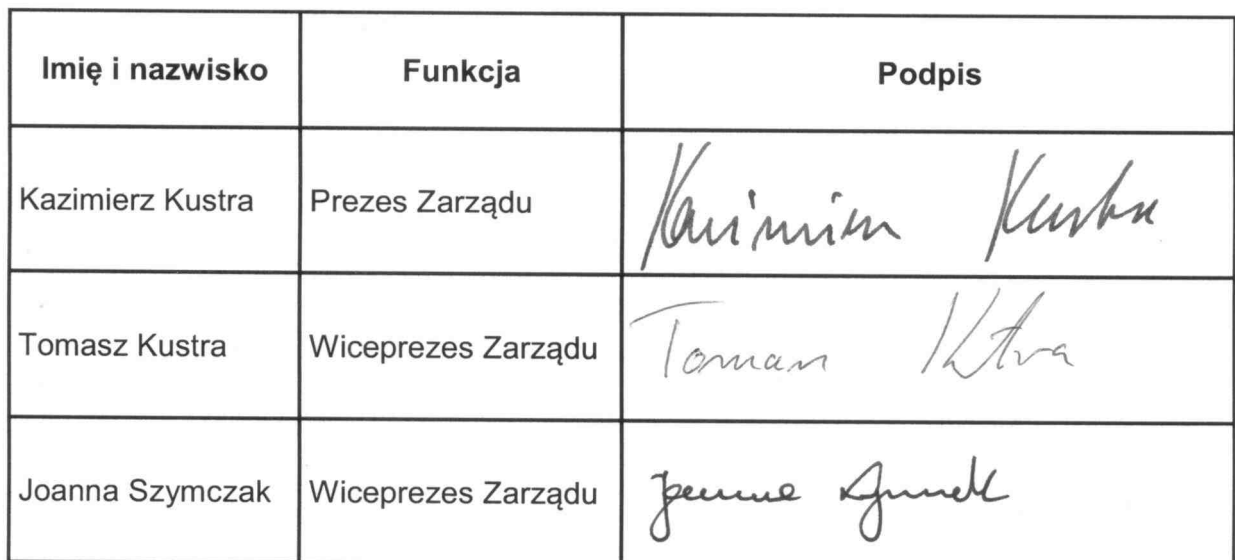 Imię i nazwisko Funkcja Podpis
Kazimierz Kustra Prezes Zarządu Kazimierz Kustra
Tomasz Kustra Wiceprezes Zarządu Tomasz Kustra
Joanna Szymczak Wiceprezes Zarządu